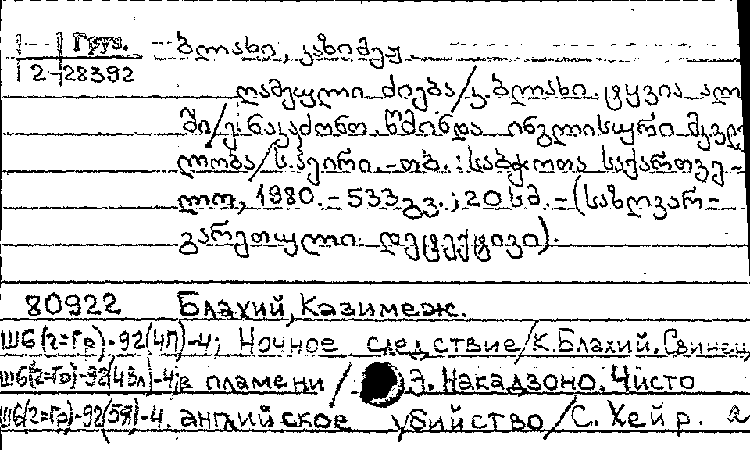 Груз. ბლახი, კაზიმეჟ.
2-28392
ღამეული ძიება/კ. ბლახი. ტყვია ალ
ში/ე. ნაკაძონო. წმინდა ინგლისური მკვლე
ლობა/ს. ჰეირი. -თბ.: საბჭოთა საქართვე-
ლო, 1980. - 533 გვ.; 20 სმ. - (საზღვარ-
გარეთული დეტექტივი).
80922 Блахий, Казимеж.
Ш6(2=Гр)-92(4П)-4; Ночное следствие/К. Блахий. Свинец
Ш6(2=Гр)-92(43Л)-4; в пламени / Э. Накадзоно. Чисто
Ш6(2=Гр)-92(5Я)-4. английское убийство/С. Хейр. а